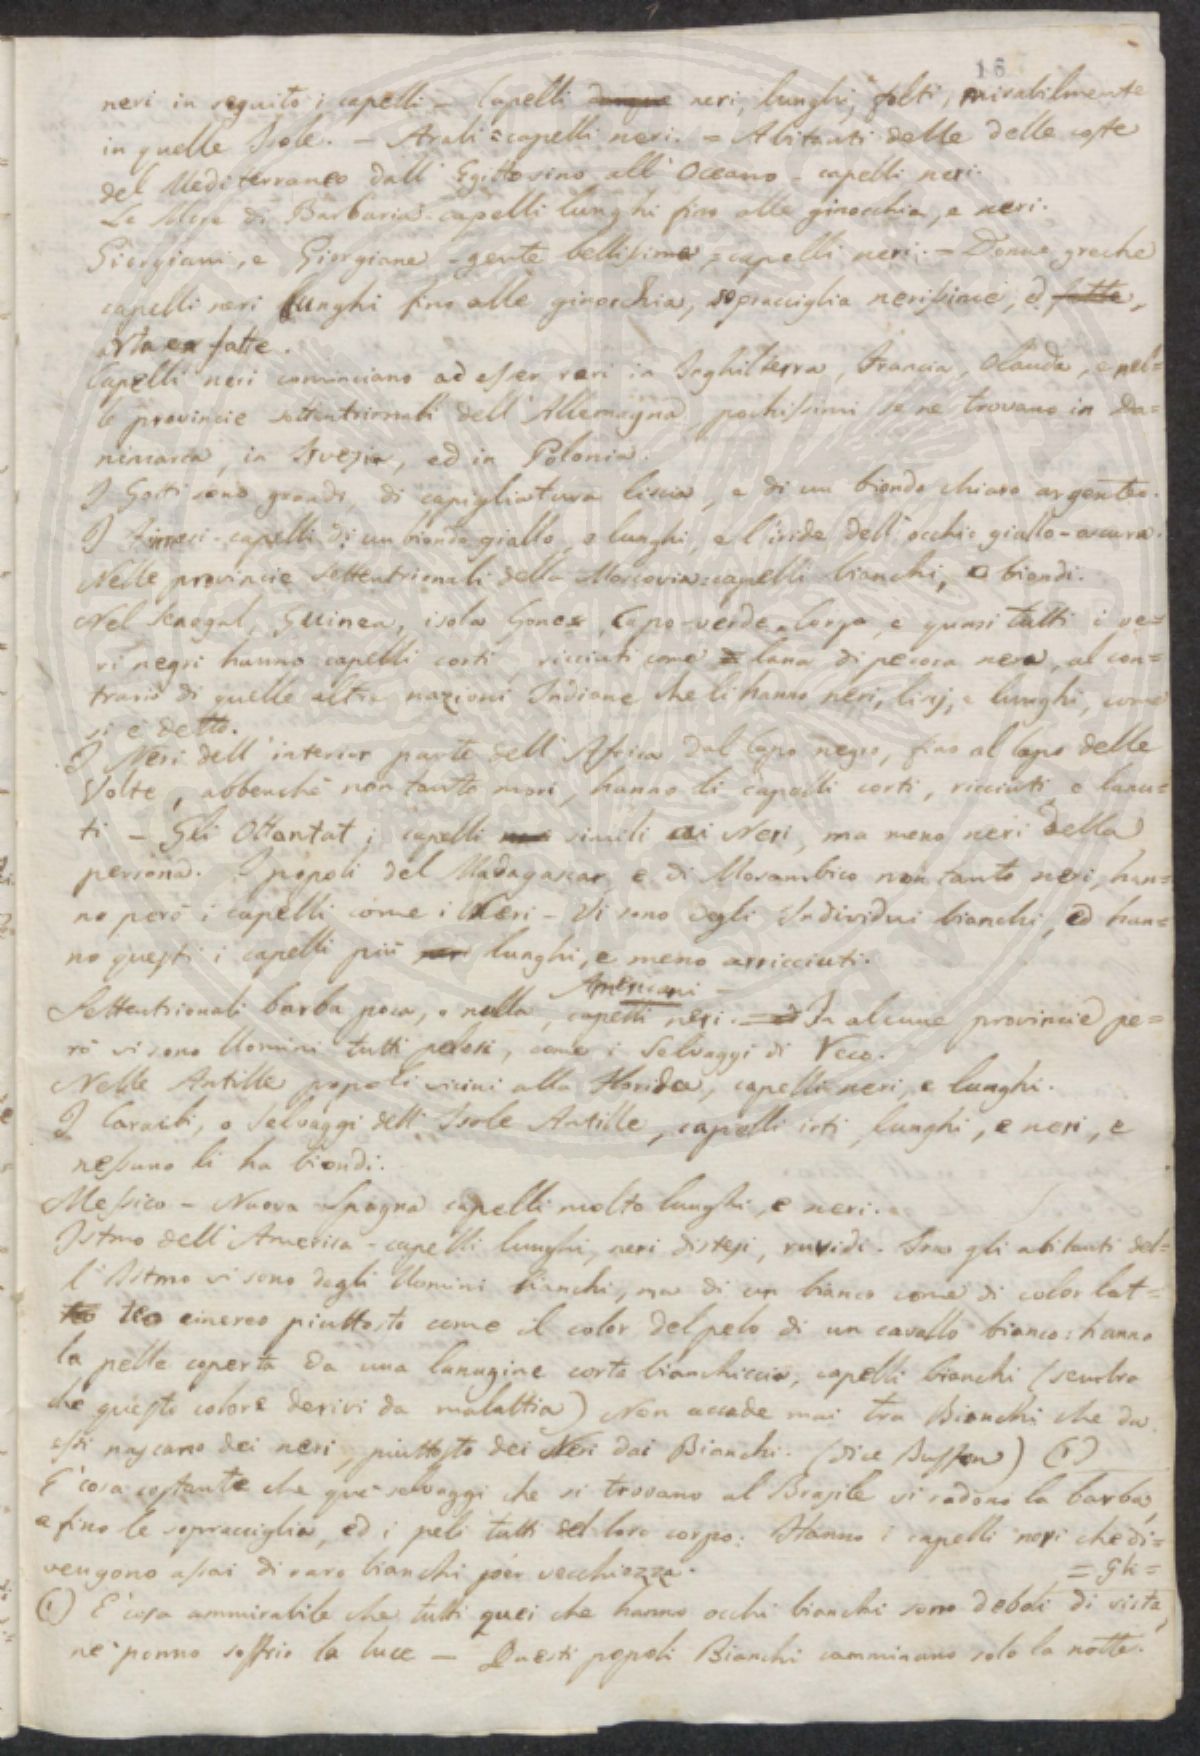 16
neri in seguito i capelli - Capelli dunque neri, lunghi, folti, mirabilmente
in quelle Isole. - Arabi = capelli neri. = Abitanti delle delle coste
del Mediterraneo dall' Egitto sino all' Oceano - capelli neri.
Le More di Barbaria - capelli lunghi fino alle ginocchia, e neri.
Giorgiani, e Giorgiane - gente bellissima = capelli neri. - Donne greche
capelli neri lunghi fino alle ginocchia, sopracciglia nerissime, ed folte,
folte.
Capelli neri cominciano ad esser rari in Inghilterra, Francia, Olanda, e nel=
le provincie settentrionali dell' Allemagna, pochissimi se ne trovano in Da=
nimarca, in Svezia, ed in Polonia.
I Goti sono grandi, di capigliatura liscia, e di un biondo chiaro argenteo.
I - capelli di un biondo giallo, e lunghi, e l'iride dell' occhio giallo-oscura.
Nelle provincie settentrionali della Moscovia = capelli bianchi, o biondi.
Nel Senegal, Guinea, isola Gorea, Capo-verde, e quasi tutti i ve=
ri negri hanno capelli corti, ricciuti come lana di pecora nera, al con=
trario di quelle altre nazioni Indiane che li hanno neri, lisj, e lunghi, come
si è detto.
I Neri dell' interior parte dell' Africa dal Capo negro, fino al Capo delle
Volte, abbenchè non tanto mori, hanno li capelli corti, ricciuti, e lanu=
ti - Gli Ottentoti; capelli simili ai Neri, ma meno neri della
persona. I popoli del Madagascar, e di Mosambico non tanto neri, han=
no però i capelli come i Neri - Vi sono degli Individui bianchi, ed han=
no questi i capelli più lunghi, e meno arricciuti.
Americani -
Settentrionali barba poca, o nulla, capelli neri. In alcune provincie pe=
rò vi sono Uomini tutti pelosi, come i Selvaggi di Yeco.
Nelle Antille popoli vicini alla Florida, capelli neri, e lunghi.
I Caraibi, o Selvaggi dell' Isole Antille, capelli irti, lunghi, e neri, e
nessuno li ha biondi.
Messico - Nuova Spagna capelli molto lunghi, e neri.
Istmo dell' America - capelli lunghi, neri distesi, ruvidi. Tra gli abitanti del=
l' Istmo vi sono degli Uomini bianchi, ma di un bianco come di color lat=
teo cinereo piuttosto come il color del pelo di un cavallo bianco: hanno
la pelle coperta da una lanugine corta bianchiccia, capelli bianchi (sembra
che questo colore derivi da malattia) Non accade mai tra Bianchi che da
essi nascano dei neri, piuttosto dei Neri dai Bianchi. (Dice Buffon) (1)
E' cosa costante che que' selvaggi che si trovano al Brasile si radono la barba,
e fino le sopracciglia, ed i peli tutti del loro corpo. Hanno i capelli neri che di=
vengono assai di raro bianchi per vecchiezza.
(1) E' cosa ammirabile che tutti quei che hanno occhi bianchi sono deboli di vista,
nè ponno soffrir la luce - Questi popoli Bianchi camminano solo la notte.